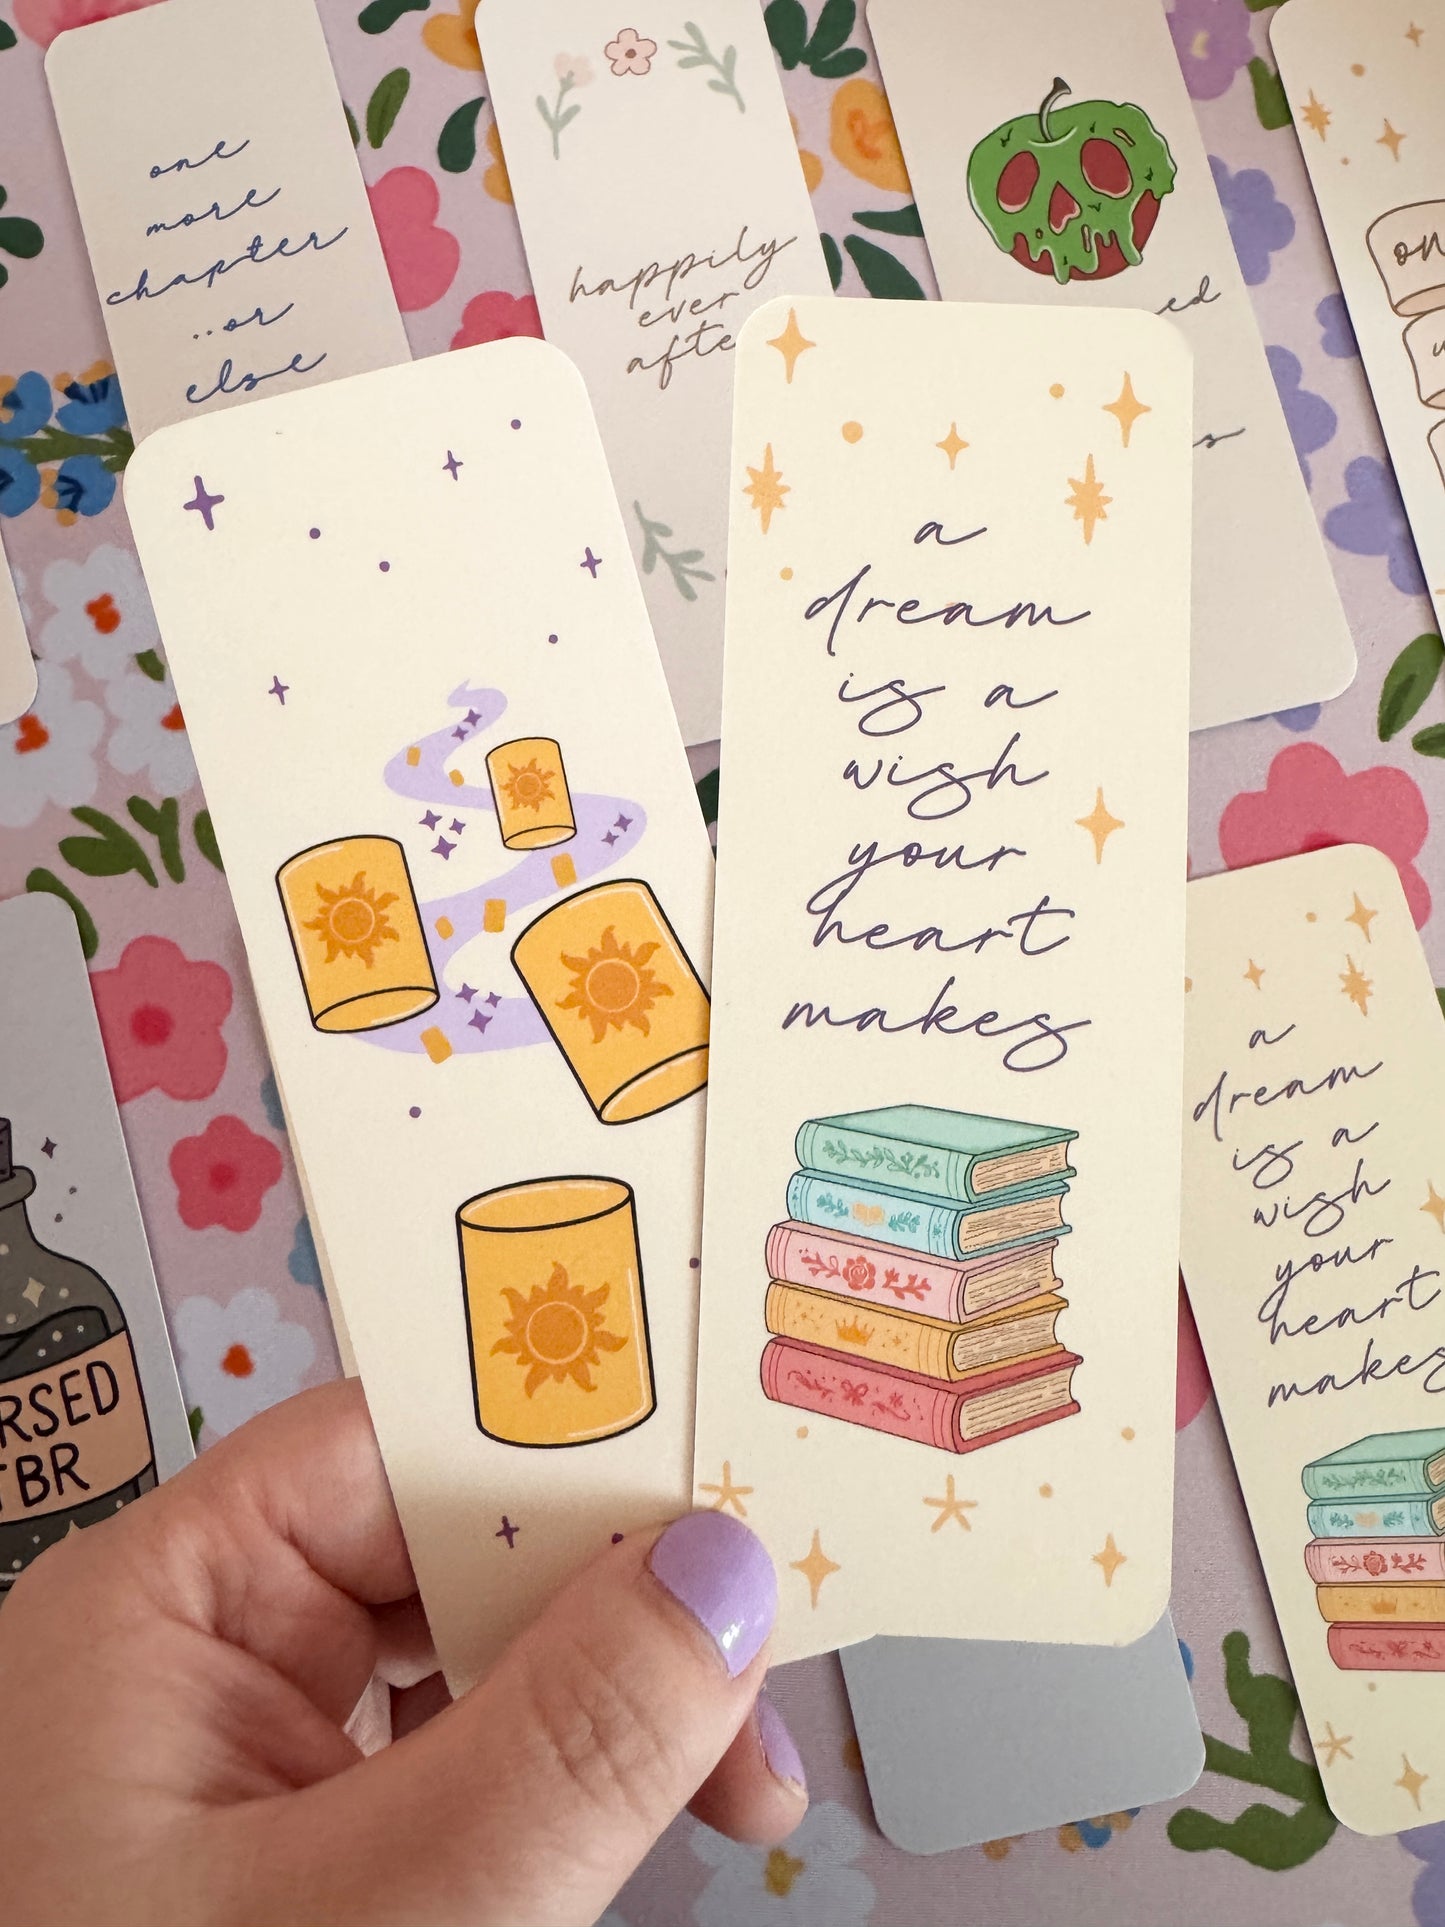 one
more
chapter
..or
else
happily
ever
a
dream
is a
wish
your
heart
makes
a
dream
is a
wish
your
heart
makes
TBR